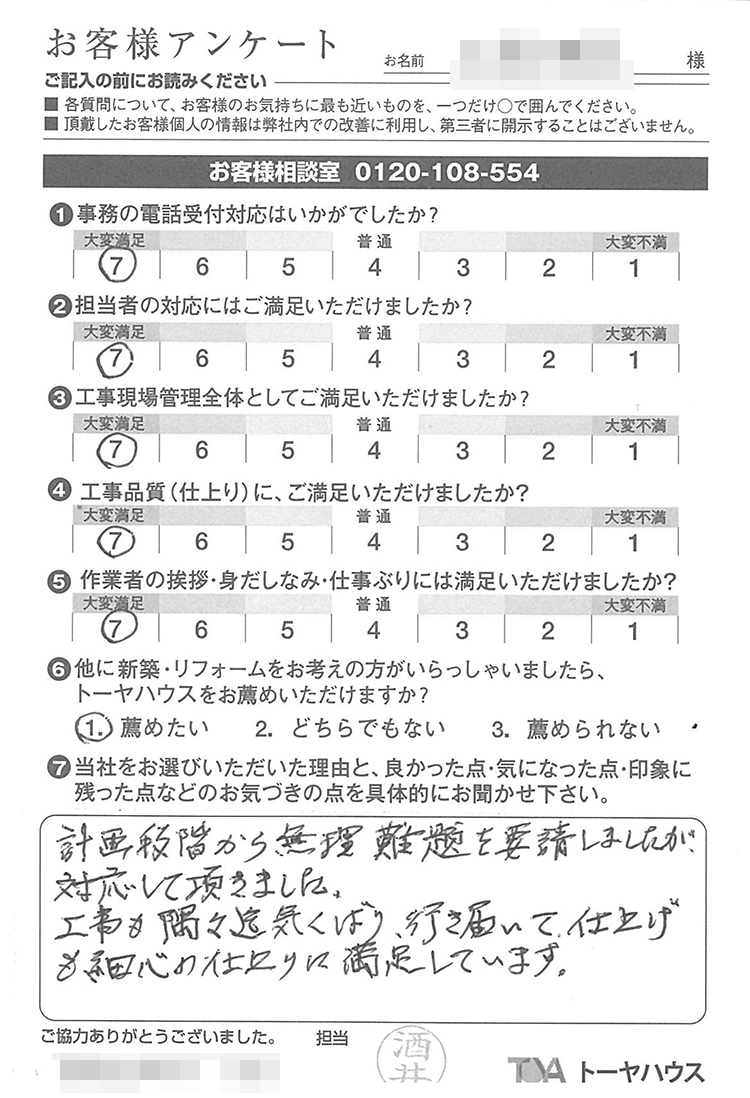 お客様アンケート
お名前 様
ご記入の前にお読みください
■ 各質問について、お客様のお気持ちに最も近いものを、一つだけ〇で囲んでください。
■ 頂戴したお客様個人の情報は弊社内での改善に利用し、第三者に開示することはございません。
お客様相談室 0120-108-554
❶事務の電話受付対応はいかがでしたか?
大変満足 普通 大変不満
7 6 5 4 3 2 1
❷担当者の対応にはご満足いただけましたか?
大変満足 普通 大変不満
7 6 5 4 3 2 1
❸工事現場管理全体としてご満足いただけましたか?
大変満足 普通 大変不満
7 6 5 4 3 2 1
❹工事品質(仕上り)に、ご満足いただけましたか?
大変満足 普通 大変不満
7 6 5 4 3 2 1
❺作業者の挨拶・身だしなみ・仕事ぶりには満足いただけましたか?
大変満足 普通 大変不満
7 6 5 4 3 2 1
❻他に新築・リフォームをお考えの方がいらっしゃいましたら、
トーヤハウスをお薦めいただけますか?
1. 薦めたい 2. どちらでもない 3. 薦められない
❼当社をお選びいただいた理由と、良かった点・気になった点・印象に
残った点などのお気づきの点を具体的にお聞かせ下さい。
計画段階から無理難題を要請しましたが
対応して頂きました。
工事も隅々迄気くばり、行き届いて、仕上げ
も細心の仕上りに満足しています。
ご協力ありがとうございました。 担当 酒井
TOYA トーヤハウス